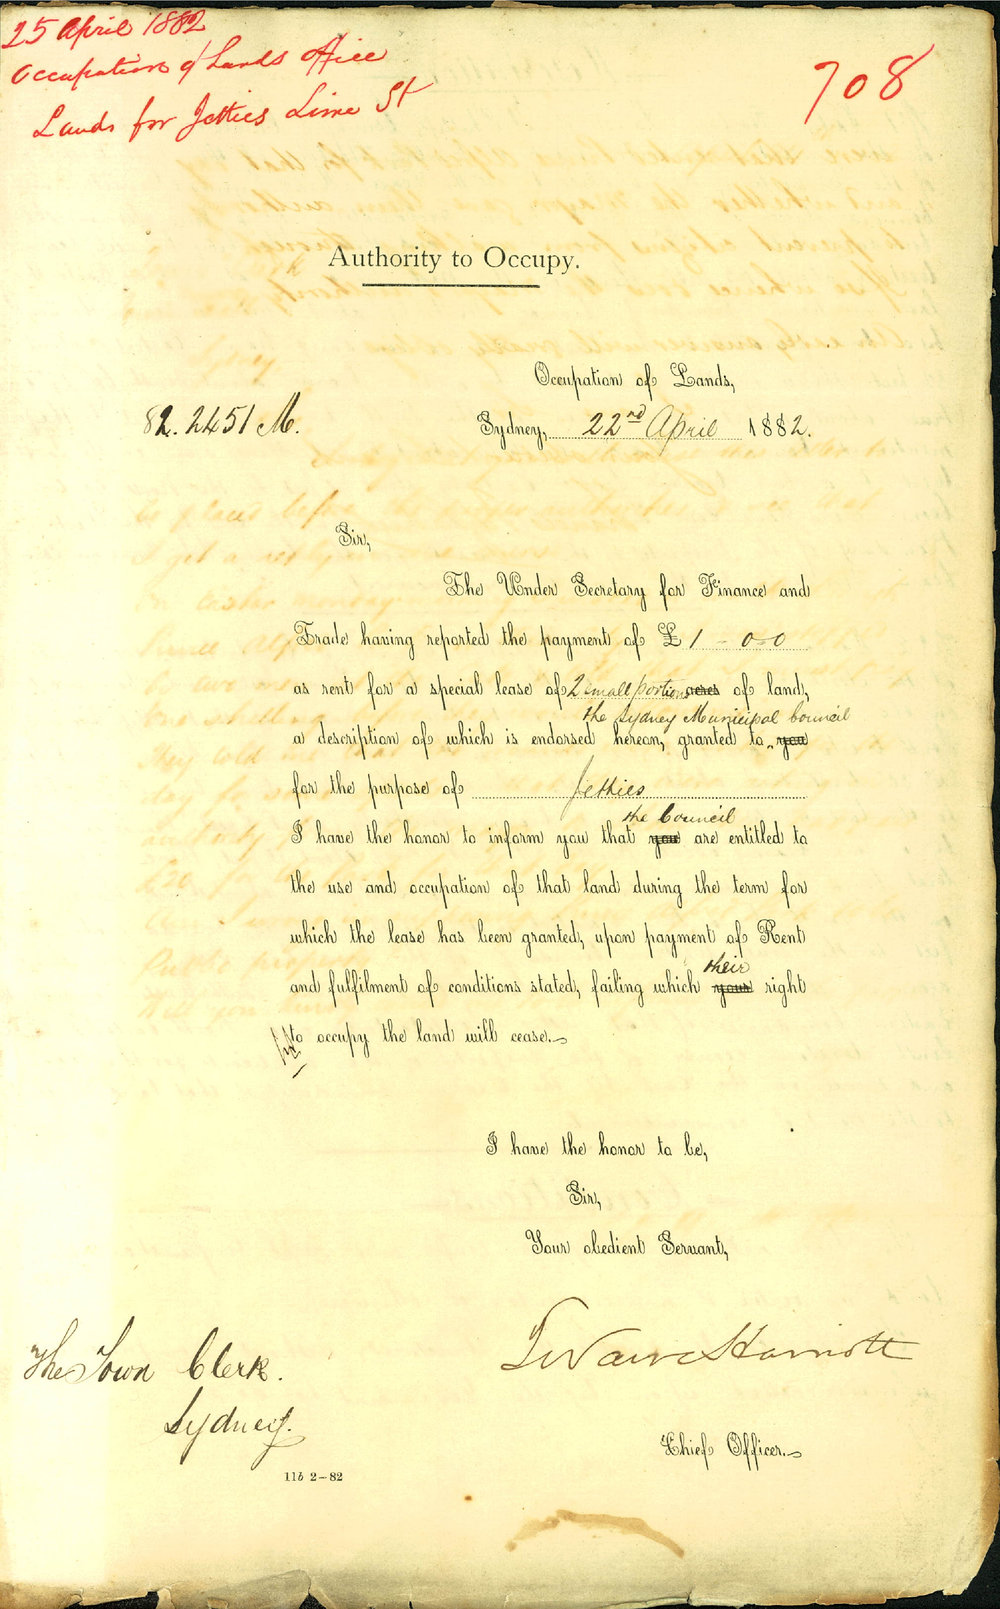 25 April 1882
Occupation of Lands Office
Lands for Jetties Lime St
708
Authority to Occupy.
Occupation of Lands,
82.2451 M.
Sydney, 22nd April 1882.
Sir,
The Under Secretary for Finance and
Trade having reported the payment of £ 1-0-0
as rent for a special lease of 2 small portions acres of land,
the Sydney Municipal Council
a description of which is endorsed hereon, granted to you
for the purpose of Jetties
the Council
I have the honor to inform you that you are entitled to
the use and occupation of that land during the term for
which the lease has been granted, upon payment of Rent
their
and fulfilment of conditions stated, failing which your right
to occupy the land will cease.
I have the honor to be,
Sir,
Your obedient Servant,
Harriott
The Town Clerk.
Sydney.
Chief Officer.
11b 2-82